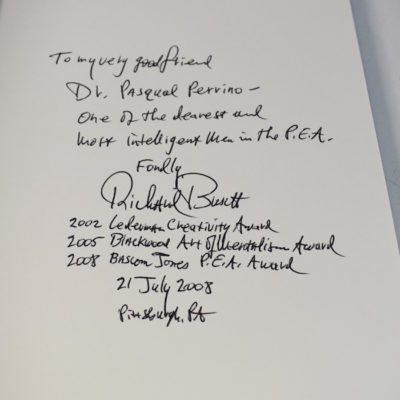 To my very good friend
Dr. Pasqual Perrino –
One of the dearest and
most intelligent men in the P.E.A.
Fondly
Richard Busch
2002 Lederman Creativity Award
2005 Blackwood Art of Mentalism Award
2008 Bascom Jones P.E.A. Award
21 July 2008
Pittsburgh, PA